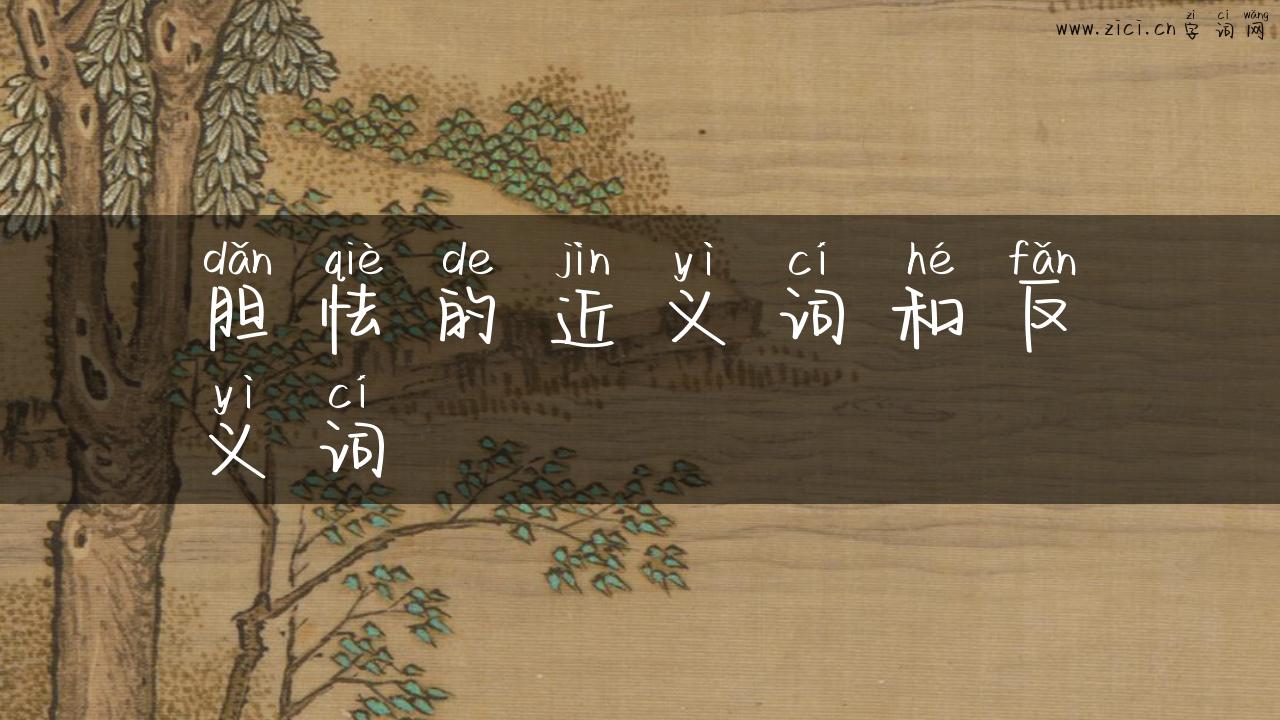 zì cí wǎng
www.zici.cn 字词网
dǎn qiè de jìn yì cí hé fǎn
胆怯的近义词和反
yì cí
义词